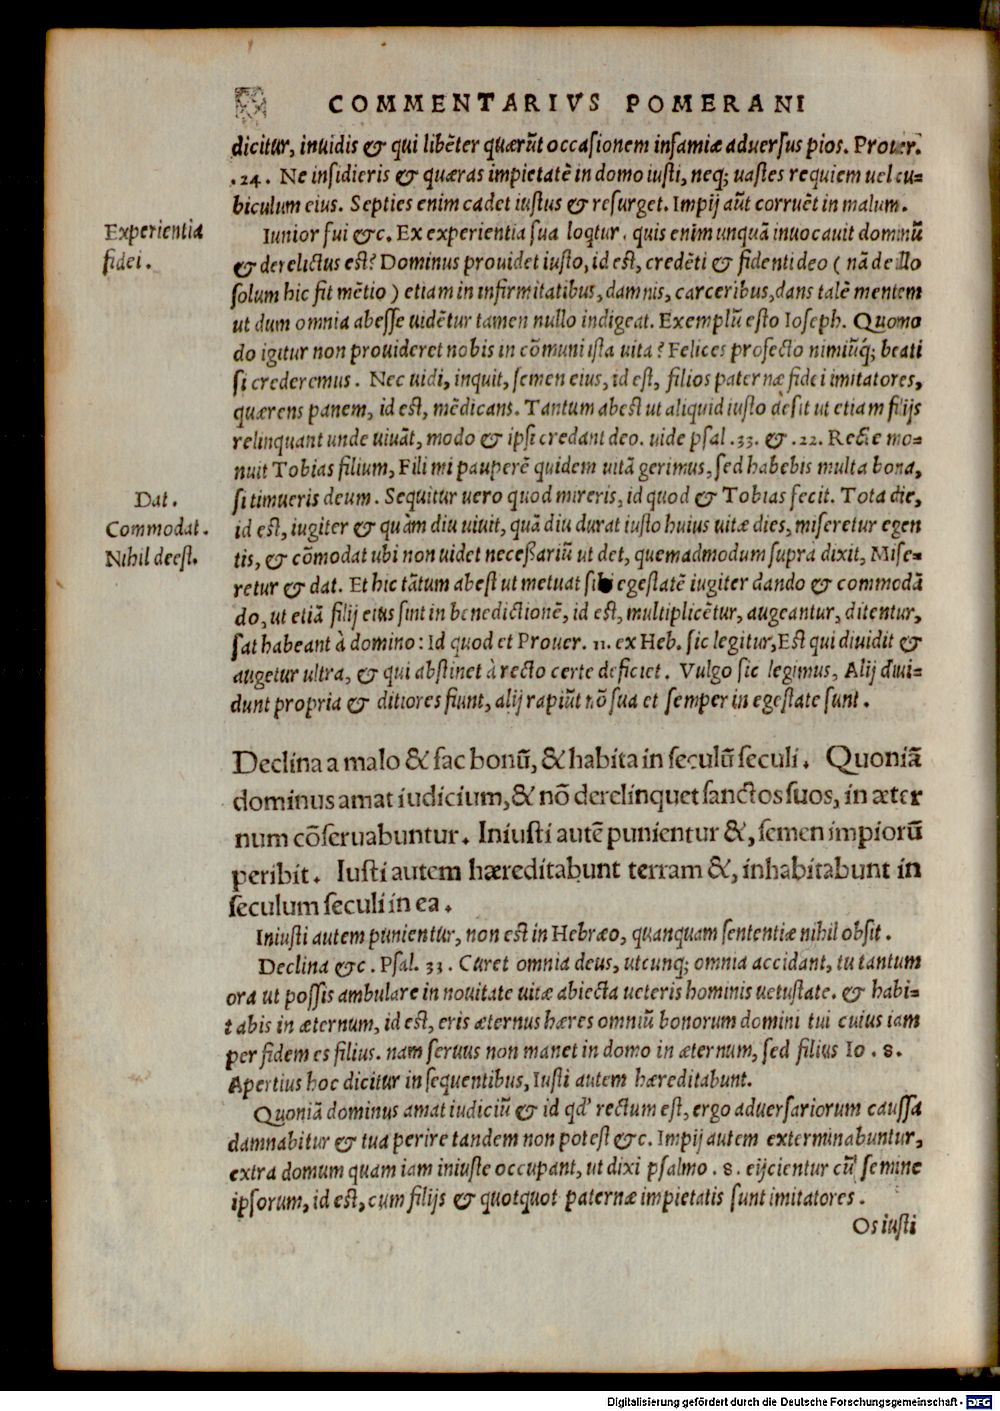 COMMENTARIVS POMERANI
dicitur, inuidis & qui libēter quærūt occasionem infamiæ aduersus pios. Prouer.
.24. Ne insidieris & quæras impietatē in domo iusti, neq; uastes requiem uel cu=
biculum eius. Septies enim cadet iustus & resurget. Impij aūt corruēt in malum.
Experientia
fidei.
Iunior fui &c. Ex experientia sua loqtur, quis enim unquā inuocauit dominū
& derelictus est? Dominus prouidet iusto, id est, credēti & fidenti deo (nā de illo
solum hic fit mētio) etiam in infirmitatibus, damnis, carceribus, dans talē mentem
ut dum omnia abesse uidētur tamen nullo indigeat. Exemplū esto Ioseph. Quomo
do igitur non prouideret nobis in cōmuni ista uita? Felices profecto nimiūq; beati
si crederemus. Nec uidi, inquit, semen eius, id est, filios paternæ fidei imitatores,
quærens panem, id est, mēdicans. Tantum abest ut aliquid iusto desit ut etiam filijs
relinquant unde uiuāt, modo & ipsi credant deo. uide psal .33. & .22. Recte mo=
nuit Tobias filium, Fili mi pauperē quidem uitā gerimus, sed habebis multa bona,
Dat.
Commodat.
Nihil deest.
si timueris deum. Sequitur uero quod mireris, id quod & Tobias fecit. Tota die,
id est, iugiter & quàm diu uiuit, quā diu durat iusto huius uitæ dies, miseretur egen
tis, & cōmodat ubi non uidet necessariū ut det, quemadmodum supra dixit, Mise=
retur & dat. Et hic tātum abest ut metuat sibi egestatē iugiter dando & commodā
do, ut etiā filij eius sint in benedictionē, id est, multiplicētur, augeantur, ditentur,
sat habeant à domino: Id quod et Prouer. 11. ex Heb. sic legitur, Est qui diuidit &
augetur ultra, & qui abstinet à recto certe deficiet. Vulgo sic legimus, Alij diui=
dunt propria & ditiores fiunt, alij rapiūt nō sua et semper in egestate sunt.
Declina a malo & fac bonū, & habita in seculū seculi. Quoniā
dominus amat iudicium, & nō derelinquet sanctos suos, in æter
num cōseruabuntur. Iniusti autē punientur &, semen impiorū
peribit. Iusti autem hæreditabunt terram &, inhabitabunt in
seculum seculi in ea.
Iniusti autem punientur, non est in Hebræo, quanquam sententiæ nihil obsit.
Declina &c. Psal. 33. Curet omnia deus, utcunq; omnia accidant, tu tantum
ora ut possis ambulare in nouitate uitæ abiecta ueteris hominis uetustate. & habi=
tabis in æternum, id est, eris æternus hæres omniū bonorum domini tui cuius iam
per fidem es filius. nam seruus non manet in domo in æternum, sed filius Io. 8.
Apertius hoc dicitur in sequentibus, Iusti autem hæreditabunt.
Quoniā dominus amat iudiciū & id qd' rectum est, ergo aduersariorum caussa
damnabitur & tua perire tandem non potest &c. Impij autem exterminabuntur,
extra domum quam iam iniuste occupant, ut dixi psalmo. 8. eijcientur cū semine
ipsorum, id est, cum filijs & quotquot paternæ impietatis sunt imitatores.
Os iusti
Digitalisierung gefördert durch die Deutsche Forschungsgemeinschaft - DFG